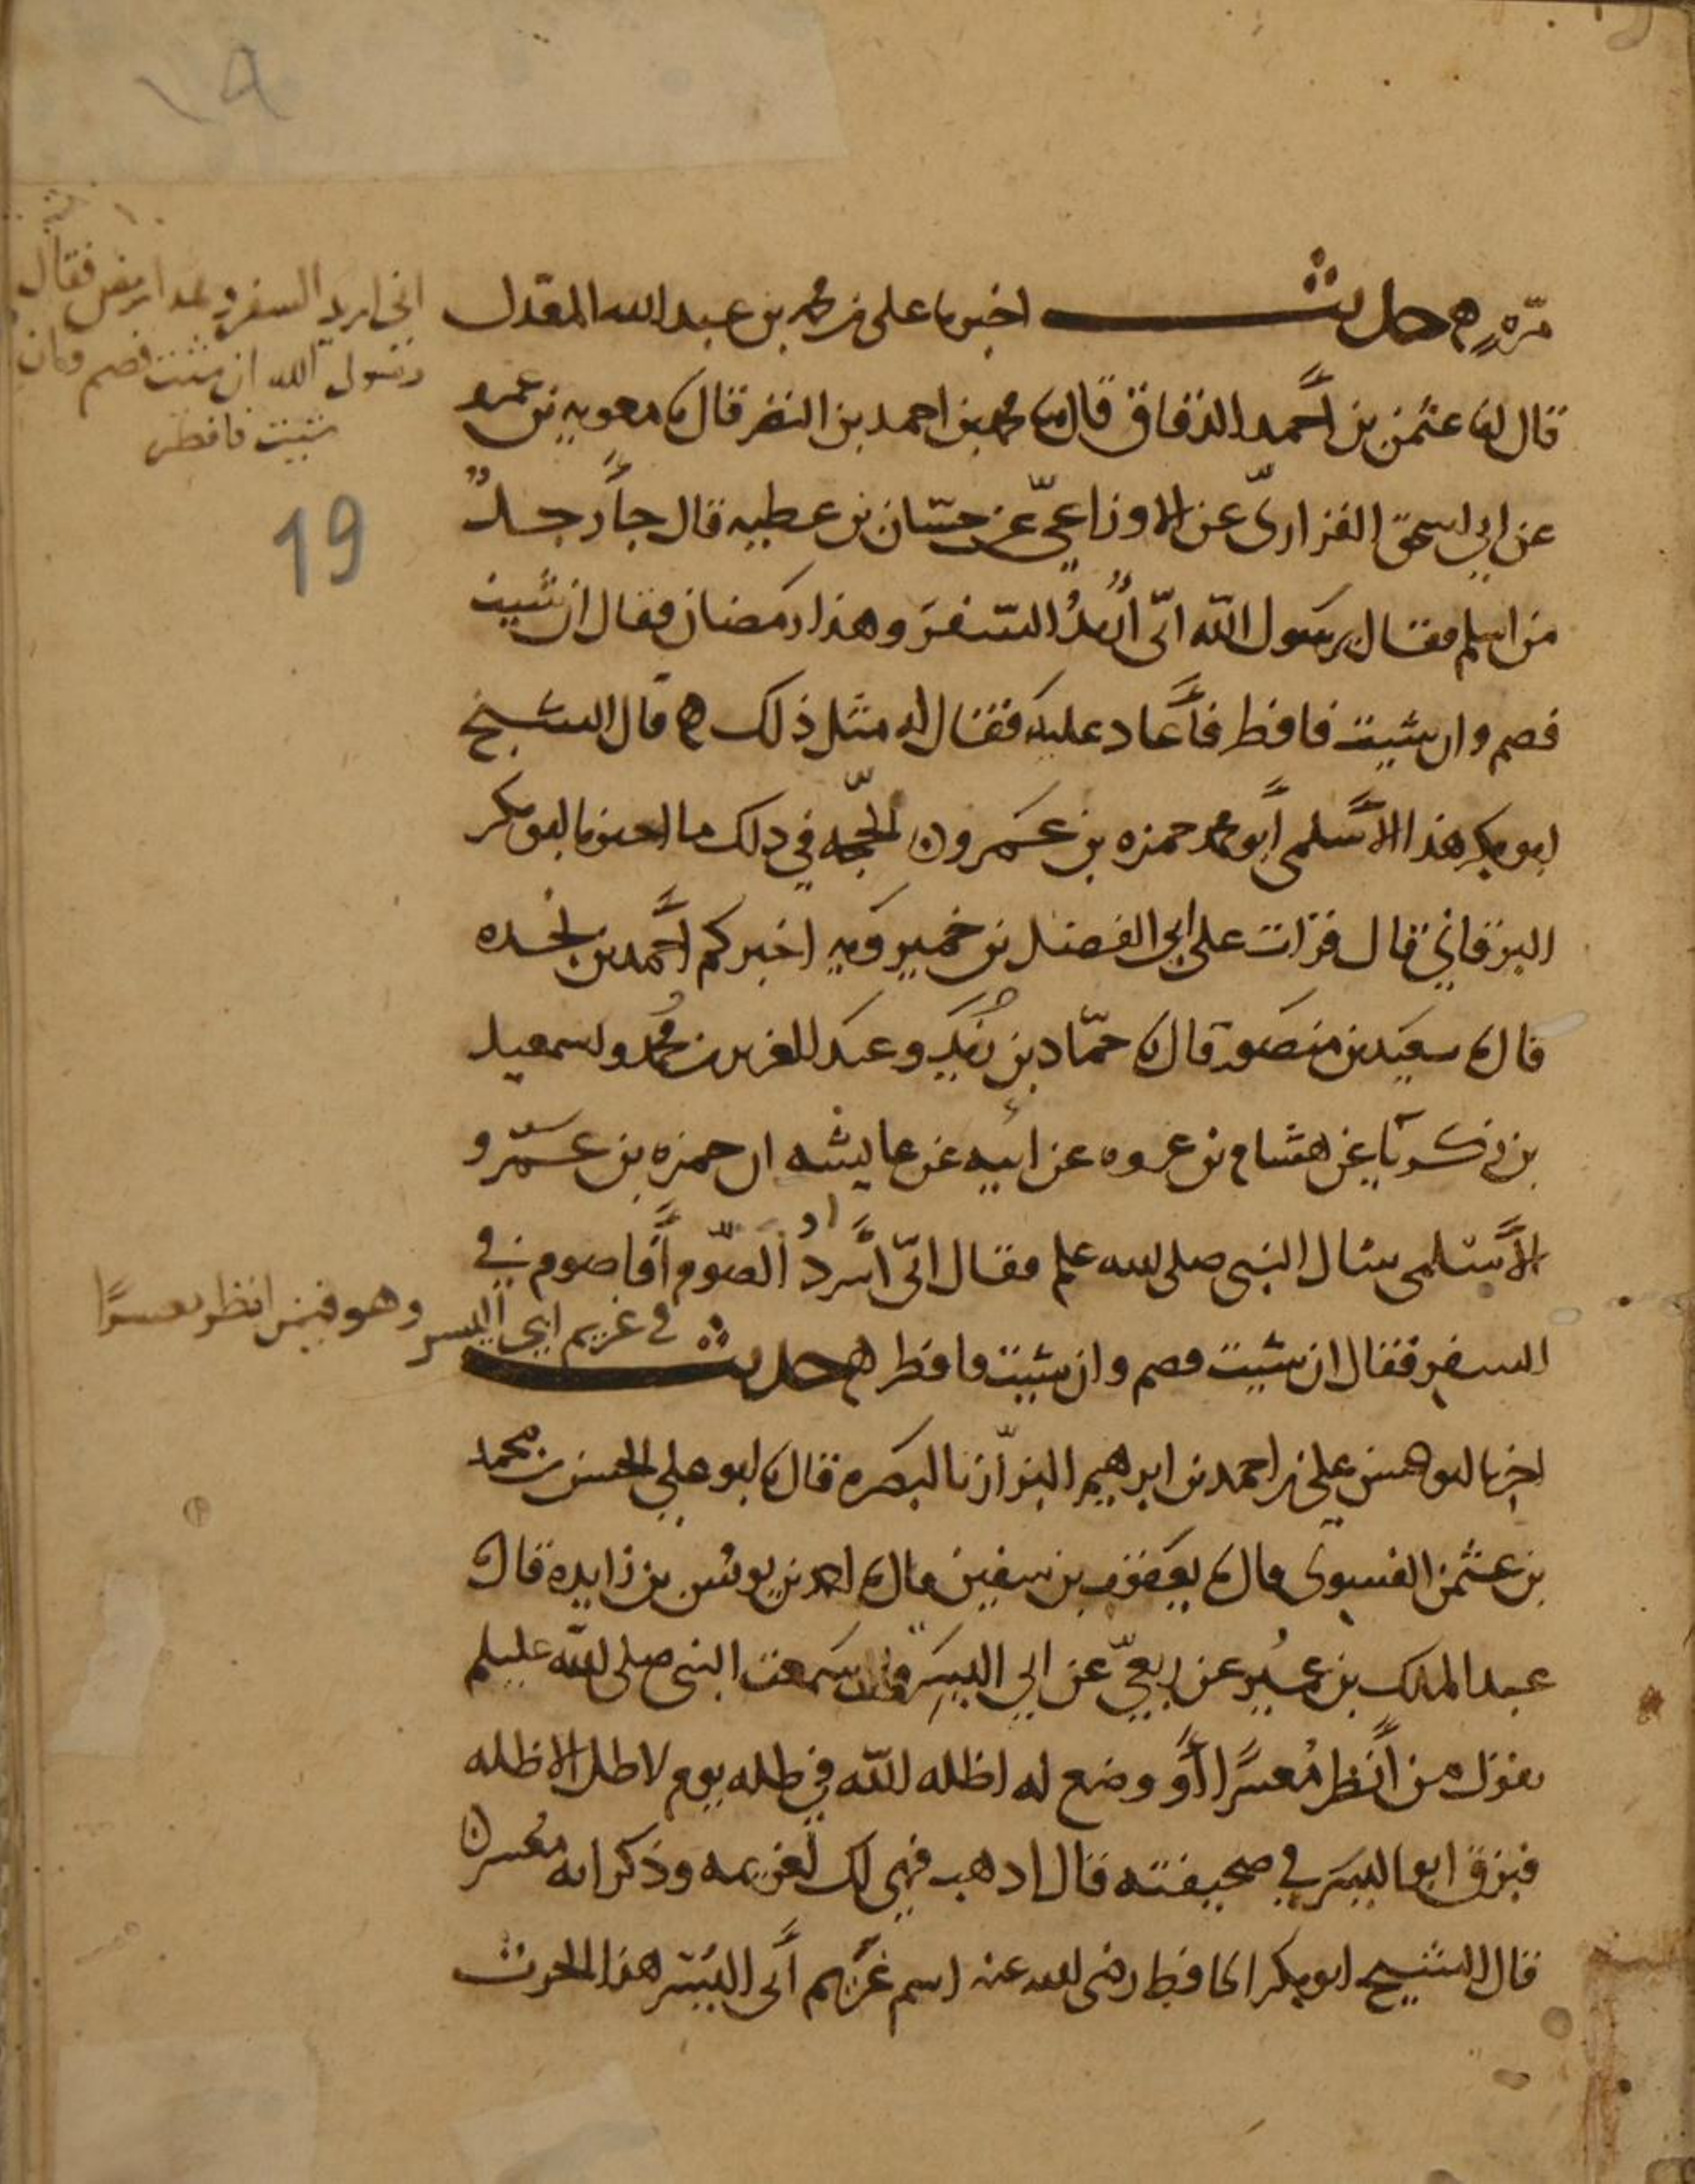 مرة ه حديث اخبرنا علي بن محمد بن عبد الله المعدل
قال انا عثمن بن أحمد الدقاق قال نا محمد بن احمد بن النضر قال نا معوية بن عمرو
عن ابي اسحق الفزاريّ عن الاوزاعيّ عن حسّان بن عطيه قال جأ رجلٌ
من اسلم فقال يرسول الله انّى أُريدُ السّفرَ وهذا رمضان فقال ان شيت
فصم وان شيت فافطر فأعاد عليه فقال له مثل ذلك ه قال الشيخ
ابو بكر هذا الأسلمى أبو محمد حمزه بن عمرو ن الحجّه في ذلك ما اخبرنا ابو بكر
البرقاني قال قرات على ابي الفضل بن خميرويه اخبركم أحمد بن نجده
قال نا سعيد بن منصور قال نا حمّاد بن زيد وعبد العزيز بن محمد واسمعيل
بن زكريّا عن هشام بن عروه عن ابيه عن عايشه ان حمزه بن عمرو
الأسلمى سال النبى صلى الله علم فقال انّى أسردُ الصّوم أفاصوم في
السفر فقال ان شيت فصم وان شيت فافطر ه حديث في غريم ابي اليسر
اخبرنا ابو الحسن علي بن احمد بن ابرهيم البزّاز بالبصره قال نا ابو علي الحسن بن محمد
بن عثمن الفسوى قال نا يعقوب بن سفين قال نا احمد بن يونس بن زايده قال نا
عبد الملك بن عمُير عن ربعيّ عن ابي اليسَر قال سمعت النبى صلى الله عليلم
يقول من أنظر مُعسرًا أو وضع له اظله الله في ظله يوم لا ظل الا ظله
فبزق ابو اليسَر في صحيفته قال اذهب فهي لك لغريمه وذكر انه معُسر ن
قال الشيخ ابو بكر الحافظ رضى الله عنه اسم غريم أبى اليَسَر هذا الحرث
انى اريد السفر وهذا رمضن فقال
رسول الله ان شئت فصم وان
شئت فافطر
19
وهو فيمن انظر معسرًا
١٩